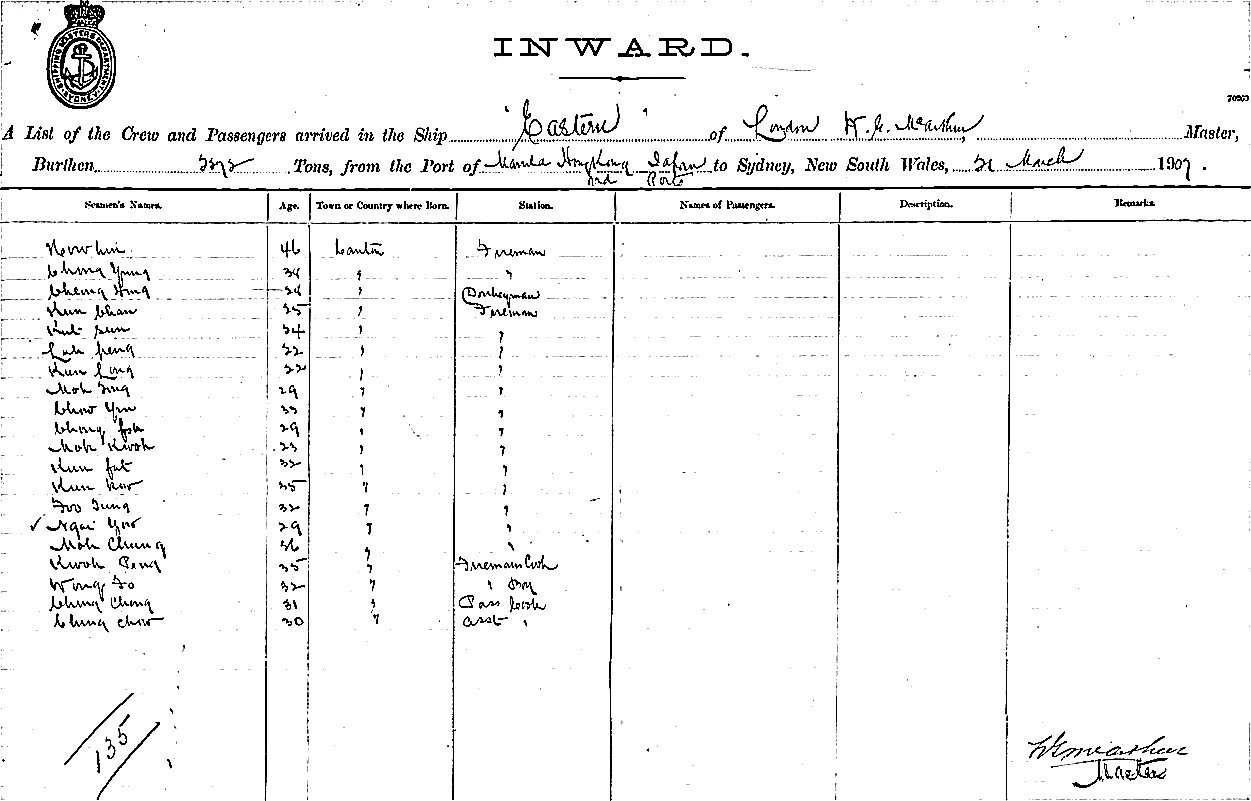 SHIPPING MASTERS DEPARTMENT SYDNEY
INWARD.
70263
A List of the Crew and Passengers arrived in the Ship "Eastern" of London W. G. McArthur Master,
Burthen Tons, from the Port of Manila Hong Kong Japan to Sydney, New South Wales, 21 March 1907.
and Ports
Seamen's Names. Age. Town or Country where Born. Station. Names of Passengers. Description. Remarks.
46 Canton Fireman
Chong Yung 34 " "
Cheong Hing 28 " Donkeyman
Kun Chan 25 " Fireman
Sun 24 " "
22 " "
Kun Long 22 " "
Mok 29 " "
Chow 33 " "
Chong 29 " "
Mok Kwok 23 " "
Kun Fat 32 " "
Kun Kow 35 " "
Foo Tung 32 " "
✓ Ngai Yow 29 " "
Mok Chung 36 " "
Kwok Peng 35 " Firemans Cook
Wong Fo 32 " " Boy
Ching Chong 31 " Pass Cook
Chung Chow 30 " Asst "
135
W G McArthur
Master